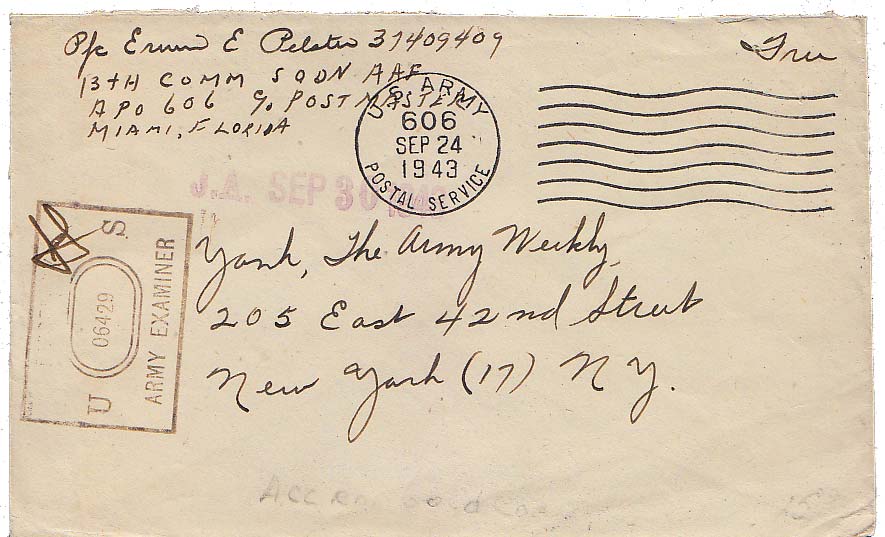 Pfc Erwin E Pelster 37409409
Free
13TH COMM SQDN AAF
APO 606 c/o POSTMASTER
MIAMI, FLORIDA
U.S. ARMY
606
SEP 24
1943
POSTAL SERVICE
J.A. SEP 30 1943
U S
06429
ARMY EXAMINER
Yank, The Army Weekly,
205 East 42nd Street
New York (17) N Y.